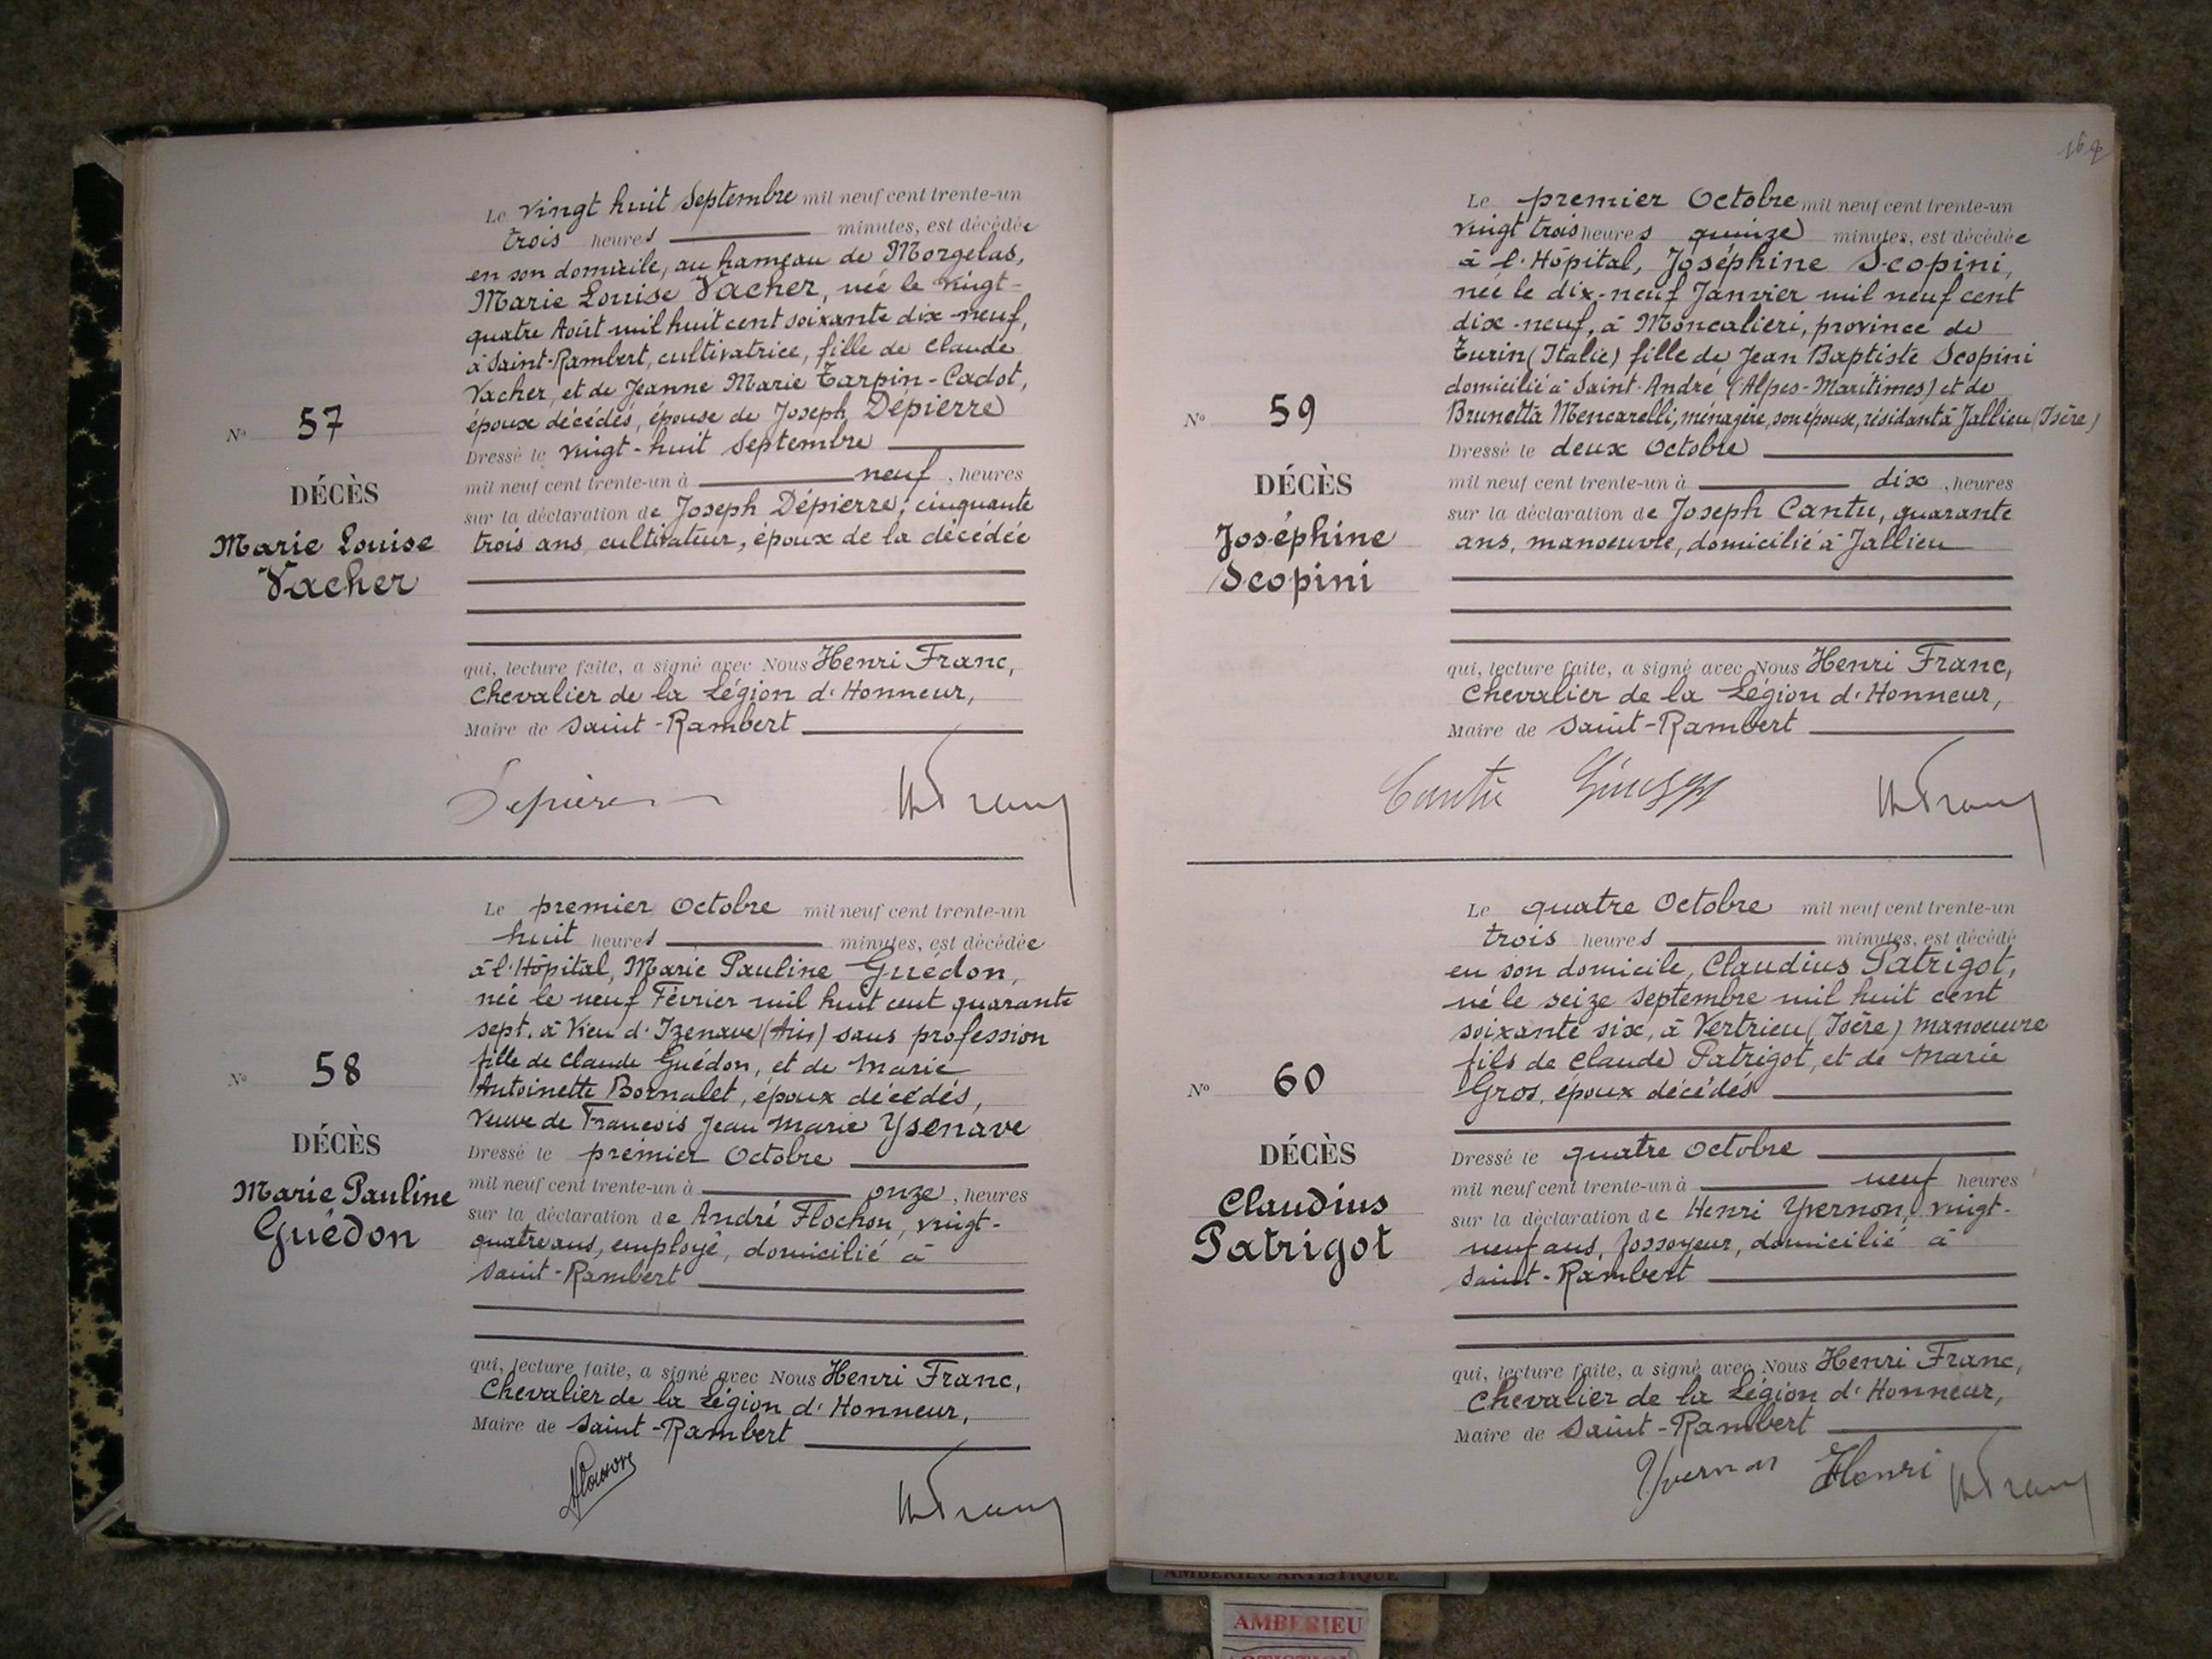 Le vingt huit Septembre mil neuf cent trente-un
trois heures minutes, est décédée
en son domicile, au hameau de Morgelas,
Marie Louise Vacher, née le vingt-
quatre Août mil huit cent soixante dix-neuf,
à Saint-Rambert, cultivatrice, fille de Claude
Vacher, et de Jeanne Marie Tarpin-Cadot,
époux décédés, épouse de Joseph Dépierre
N° 57
Dressé le vingt-huit Septembre
mil neuf cent trente-un à neuf, heures
DÉCÈS
sur la déclaration de Joseph Dépierre, cinquante
Marie Louise
trois ans, cultivateur, époux de la décédée
Vacher
qui, lecture faite, a signé avec Nous Henri Franc,
Chevalier de la Légion d'Honneur,
Maire de Saint-Rambert
Le premier Octobre mil neuf cent trente-un
huit heures minutes, est décédée
à l'Hôpital, Marie Pauline Guédon,
née le neuf Février mil huit cent quarante
sept, à Vieu d'Izenave (Ain) sans profession
fille de Claude Guédon, et de Marie
N° 58
Antoinette Bornalet, époux décédés,
veuve de François Jean Marie Ysenave
DÉCÈS
Dressé le premier Octobre
Marie Pauline
mil neuf cent trente-un à onze, heures
Guédon
sur la déclaration de André Flochon, vingt-
quatre ans, employé, domicilié à
Saint-Rambert
qui, lecture faite, a signé avec Nous Henri Franc,
Chevalier de la Légion d'Honneur,
Maire de Saint-Rambert
Le premier Octobre mil neuf cent trente-un
vingt trois heures quinze minutes, est décédée
à l'Hôpital, Joséphine Scopini,
née le dix-neuf Janvier mil neuf cent
dix-neuf, à Moncalieri, province de
Turin (Italie) fille de Jean Baptiste Scopini
domicilié à Saint-André (Alpes-Maritimes) et de
N° 59
Brunetta Mencarelli, ménagère, son épouse, résidant à Jallieu (Isère)
Dressé le deux Octobre
DÉCÈS
mil neuf cent trente-un à dix, heures
sur la déclaration de Joseph Cantu, quarante
Joséphine
ans, manoeuvre, domicilié à Jallieu
Scopini
qui, lecture faite, a signé avec Nous Henri Franc,
Chevalier de la Légion d'Honneur,
Maire de Saint-Rambert
Cantù
Le quatre Octobre mil neuf cent trente-un
trois heures minutes, est décédé
en son domicile, Claudius Patrigot,
né le seize Septembre mil huit cent
soixante six, à Vertrieu (Isère) manoeuvre
fils de Claude Patrigot, et de Marie
N° 60
Gros, époux décédés
DÉCÈS
Dressé le quatre Octobre
mil neuf cent trente-un à neuf heures
Claudius
sur la déclaration de Henri Yvernon, vingt-
Patrigot
neuf ans, fossoyeur, domicilié à
Saint-Rambert
qui, lecture faite, a signé avec Nous Henri Franc,
Chevalier de la Légion d'Honneur,
Maire de Saint-Rambert
Yvernon Henri
AMBERIEU ARTISTIQUE
AMBERIEU